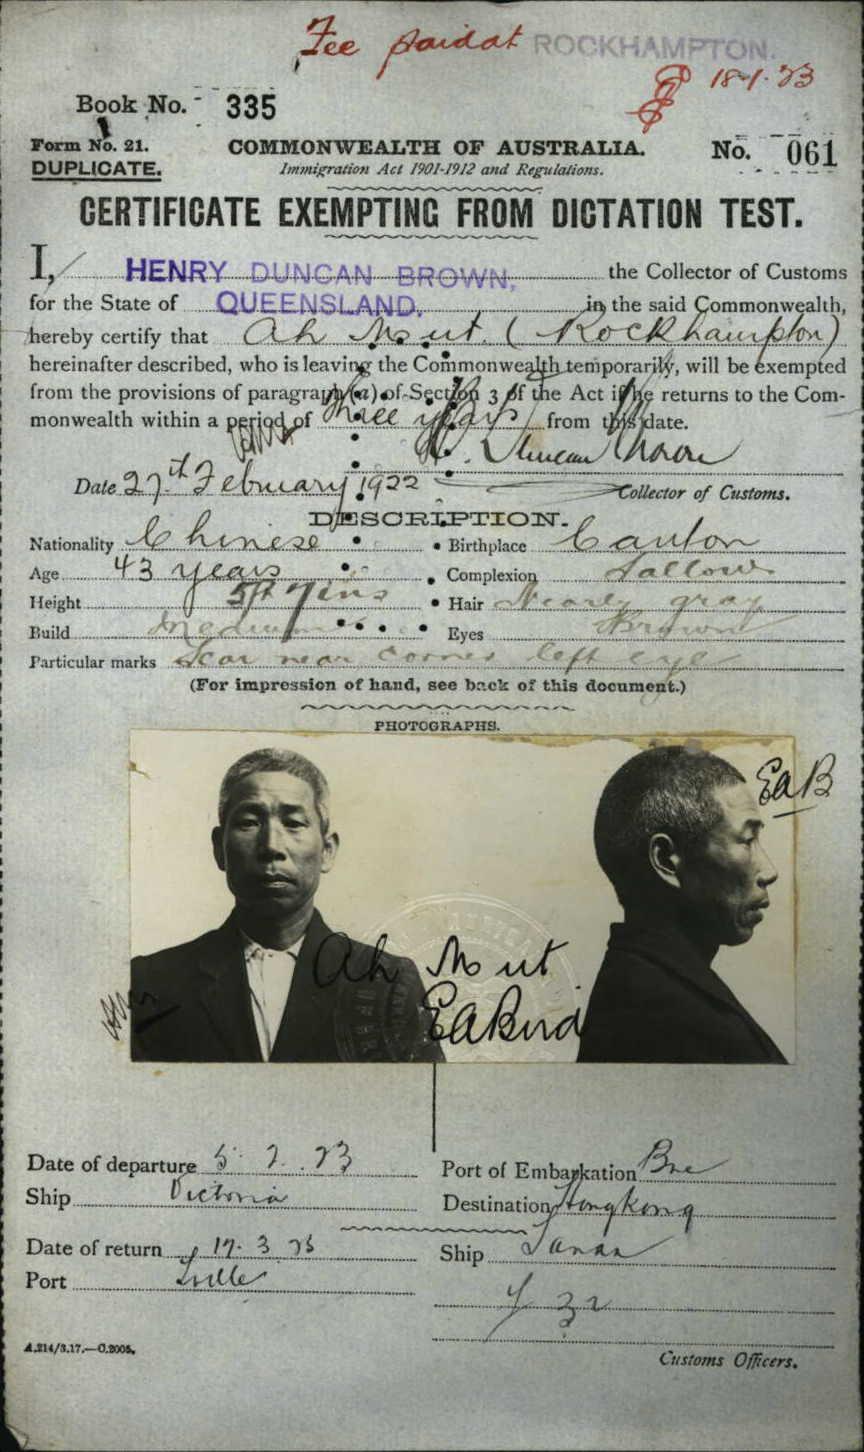 Fee paid at ROCKHAMPTON.
18.1.23
Book No. 335
Form No. 21.
DUPLICATE.
COMMONWEALTH OF AUSTRALIA.
Immigration Act 1901-1912 and Regulations.
No. 061
CERTIFICATE EXEMPTING FROM DICTATION TEST.
I, HENRY DUNCAN BROWN, the Collector of Customs
for the State of QUEENSLAND, in the said Commonwealth,
hereby certify that Ah Mout. (Rockhampton)
hereinafter described, who is leaving the Commonwealth temporarily, will be exempted
from the provisions of paragraph (a) of Section 3 of the Act if he returns to the Com-
monwealth within a period of three years from this date.
H. Duncan Brown
Date 27th February 1922 Collector of Customs.
DESCRIPTION.
Nationality Chinese Birthplace Canton
Age 43 years Complexion Sallow
Height 5ft 7ins Hair Nearly gray
Build Medium Eyes Brown
Particular marks Scar near corner left eye
(For impression of hand, see back of this document.)
PHOTOGRAPHS.
EAB
Ah Mout
EABird
Date of departure 5. 2. 23 Port of Embarkation Bne
Ship Victoria Destination Hongkong
Date of return 17. 3 25 Ship
Port Tville
A.214/3.17.—C.2005.
Customs Officers.